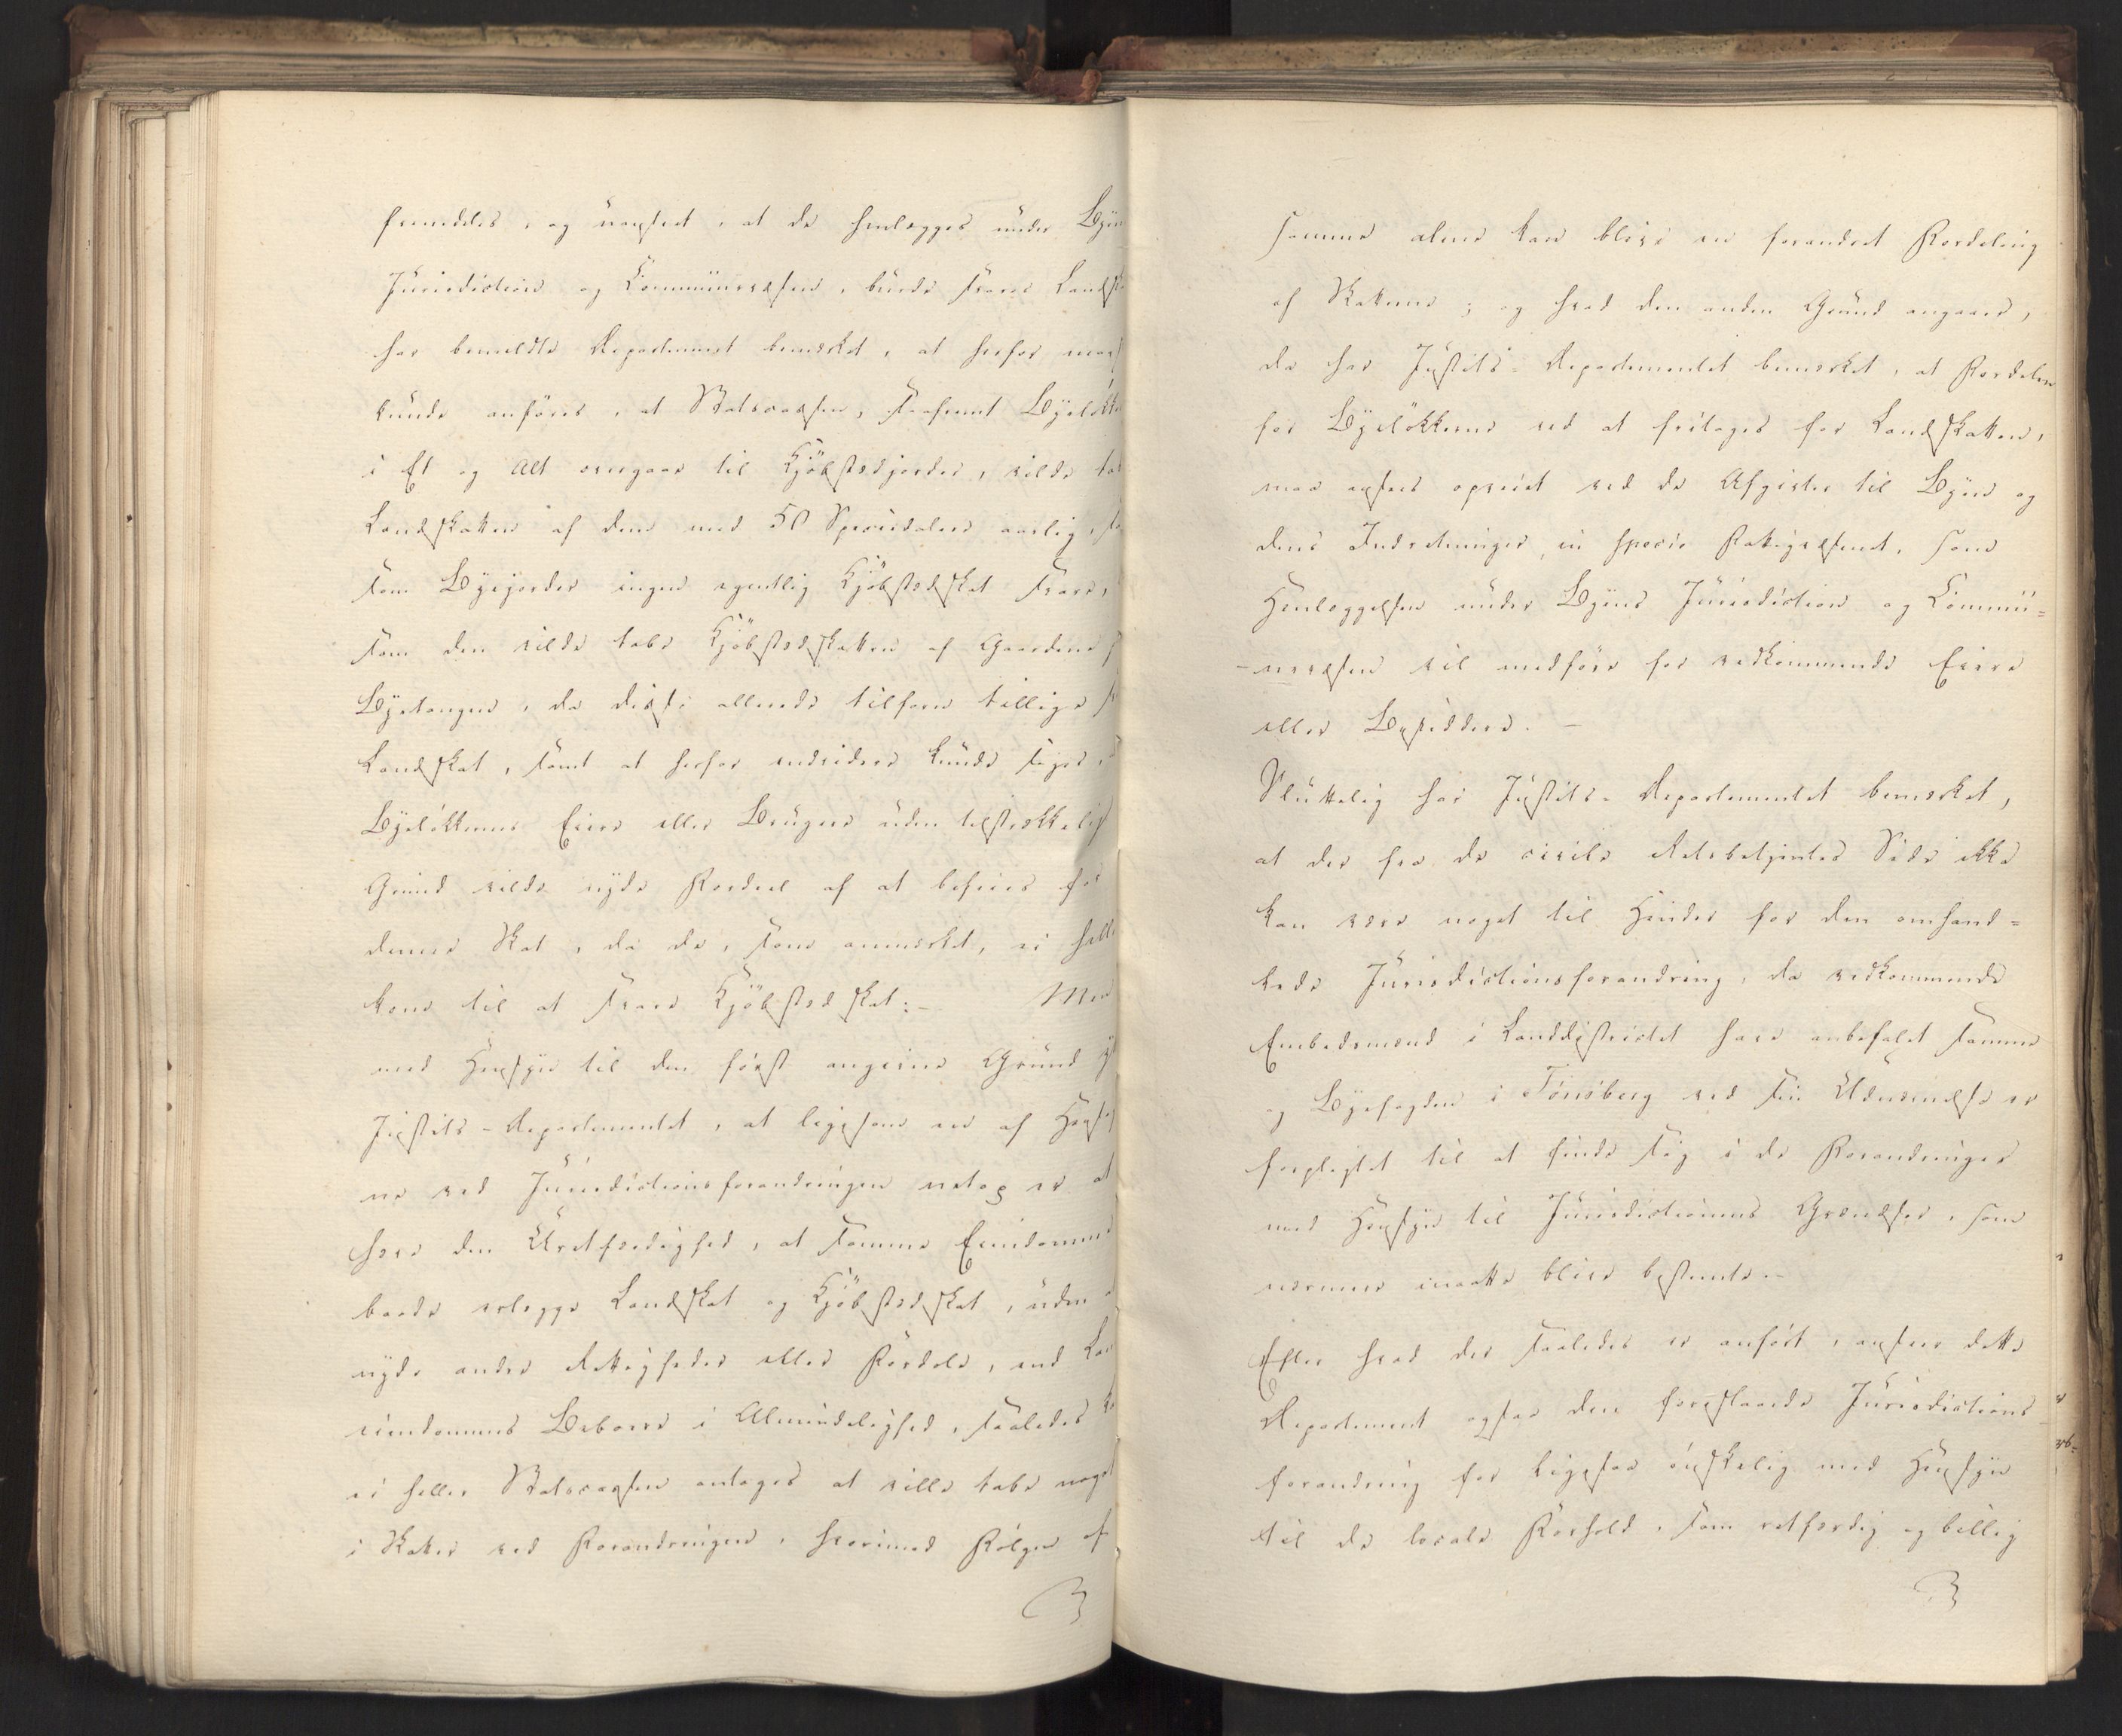 fremdeles, og uagtet, at de henlægges under Byens
Jurisdiction og Communevæsen, burde svare Landskat
har bemeldte Departement bemærket, at herfor
kunde anføres, at Statscassen, saafremt Byeløkkerne
i Et og Alt overgaae til Kjøbstedjorder, vilde tabe
Landskatten af dem med 50 Speciedaler aarlig,
som Byejorder ingen egentlig Kjøbstedskat svare,
som den vilde tabe Kjøbstedskatten af Gaardene
Byetangen, da disse allerede tilforn tillige
Landskat, samt at herfor endvidere kunde siges,
Byeløkkernes Eiere eller Brugere uden tilstrækkelig
Grund vilde nyde Fordeel af at befries for
denne Skat, da de, som anmærket, ei heller
kom til at svare Kjøbstedskat:- Men
med Hensyn til den først angivne Grund
Justits-Departementet, at ligesom en af
ne ved Jurisdictionsforandringen netop er at
hæve den Uretfærdighed, at samme Eiendomme
baade erlægge Landskat og Kjøbstedskat, uden at
nyde andre Rettigheder eller Fordele, end
eiendommes Beboere i Almindelighed, saaledes kan
ei heller Statscassen antages at ville tabe noget
i Skatter ved Forandringen, hvorimod Følgen af
samme alene kan blive en forandret Fordeling
af Skatterne; og hvad den anden Grund angaaer,
da har Justits-Departementet bemærket, at Fordelen
for Byeløkkerne ved at fritages for Landskatten,
maa ansees opveiet ved de Afgivter til Byen og
dens Indretninger, in specie Fattigvæsenet, som
Henlæggelsen under Byens Jurisdiction og Commu=
-nevæsen vil medføre for vedkommende Eiere
eller Besiddere.-
Sluttelig har Justits-Departementet bemærket,
at der fra de civile Retsbetjentes Side ikke
kan være noget til Hinder for den omhand=
lede Jurisdictionsforandring, da vedkommende
Embedsmænd i Landdistrictet have anbefalet samme
og Byefogden i Tønsberg ved sin Udnævnelse er
forpligtet til at finde sig i de Forandringer
med Hensyn til Jurisdictionens Grændser, som
nærmere maatte blive bestemte.-
Efter hvad der saaledes er anført, ansees dette
Departement ogsaa den foreslaaede Jurisdictions-
forandring for ligesaa ønskelig med Hensyn
til de locale Forhold, som retfærdig og billig